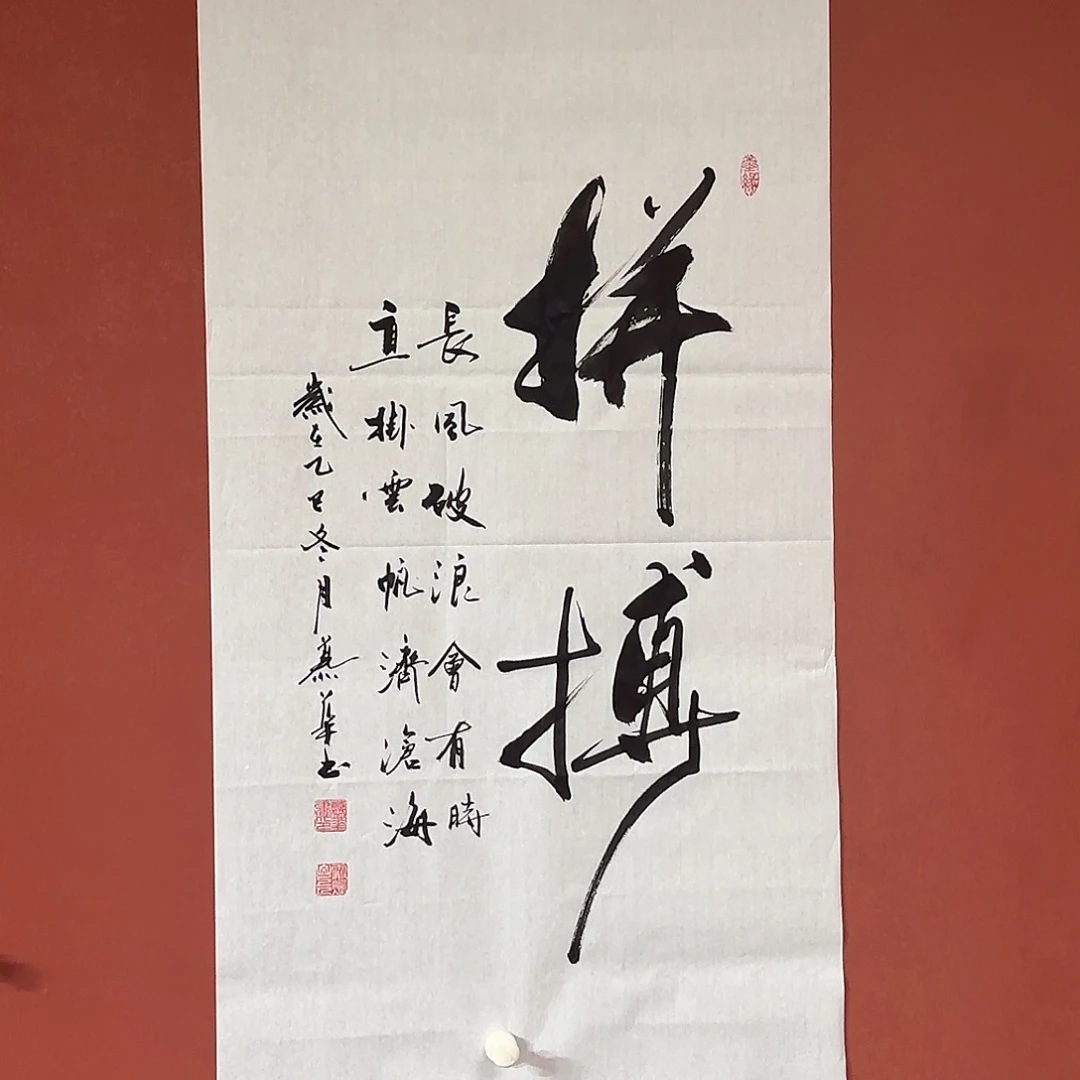 拼搏
長風破浪會有時
直掛雲帆濟滄海
歲在乙巳冬月慕華书